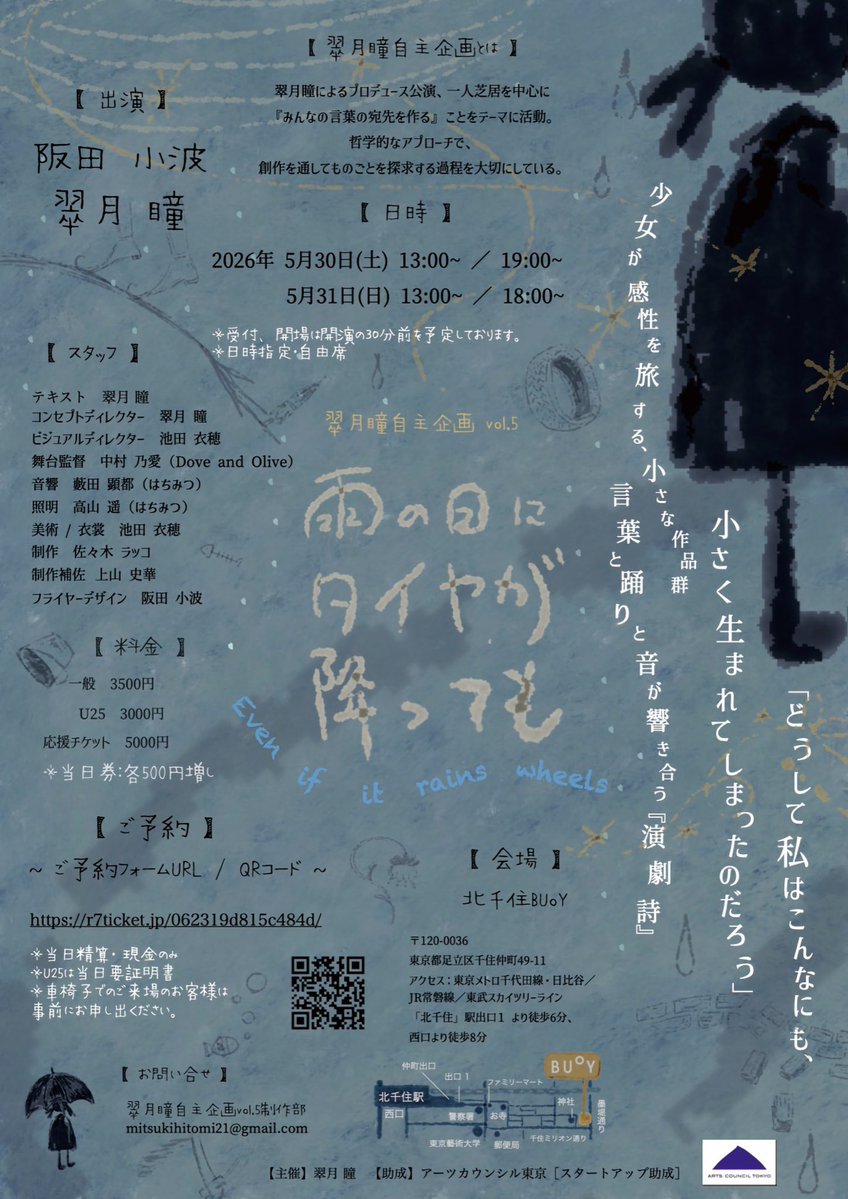 【 翠月瞳自主企画とは 】
翠月瞳によるプロデュース公演、一人芝居を中心に
『みんなの言葉の宛先を作る』ことをテーマに活動。
哲学的なアプローチで、
創作を通してものごとを探求する過程を大切にしている。
【 出演 】
阪田 小波
翠月 瞳
【 日時 】
2026年 5月30日(土) 13:00~ ／ 19:00~
5月31日(日) 13:00~ ／ 18:00~
※受付、開場は開演の30分前を予定しております。
※日時指定・自由席
【 スタッフ 】
テキスト 翠月 瞳
コンセプトディレクター 翠月 瞳
ビジュアルディレクター 池田 衣穂
舞台監督 中村 乃愛（Dove and Olive）
音響 藪田 顕都（はちみつ）
照明 高山 遥（はちみつ）
美術 / 衣裳 池田 衣穂
制作 佐々木 ラッコ
制作補佐 上山 史華
フライヤーデザイン 阪田 小波
翠月瞳自主企画 vol.5
雨の日に
タイヤが
降っても
Even if it rains wheels
「どうして私はこんなにも、
小さく生まれてしまったのだろう」
少女が感性を旅する、小さな作品群
言葉と踊りと音が響き合う『演劇詩』
【 料金 】
一般 3500円
U25 3000円
応援チケット 5000円
※当日券:各500円増し
【 ご予約 】
~ ご予約フォームURL / QRコード ~
https://r7ticket.jp/062319d815c484d/
※当日精算・現金のみ
※U25は当日要証明書
※車椅子でのご来場のお客様は
事前にお申し出ください。
【 会場 】
北千住BUoY
〒120-0036
東京都足立区千住仲町49-11
アクセス：東京メトロ千代田線・日比谷／
JR常磐線／東武スカイツリーライン
「北千住」駅出口１ より徒歩6分、
西口より徒歩8分
【 お問い合せ 】
翠月瞳自主企画vol.5制作部
mitsukihitomi21@gmail.com
BUoY
仲町出口
出口１
ファミリーマート
北千住駅
西口
警察署
お寺
神社
墨堤通り
東京藝術大学
郵便局
千住ミリオン通り
【主催】翠月 瞳 【助成】アーツカウンシル東京［スタートアップ助成］
ARTS COUNCIL TOKYO